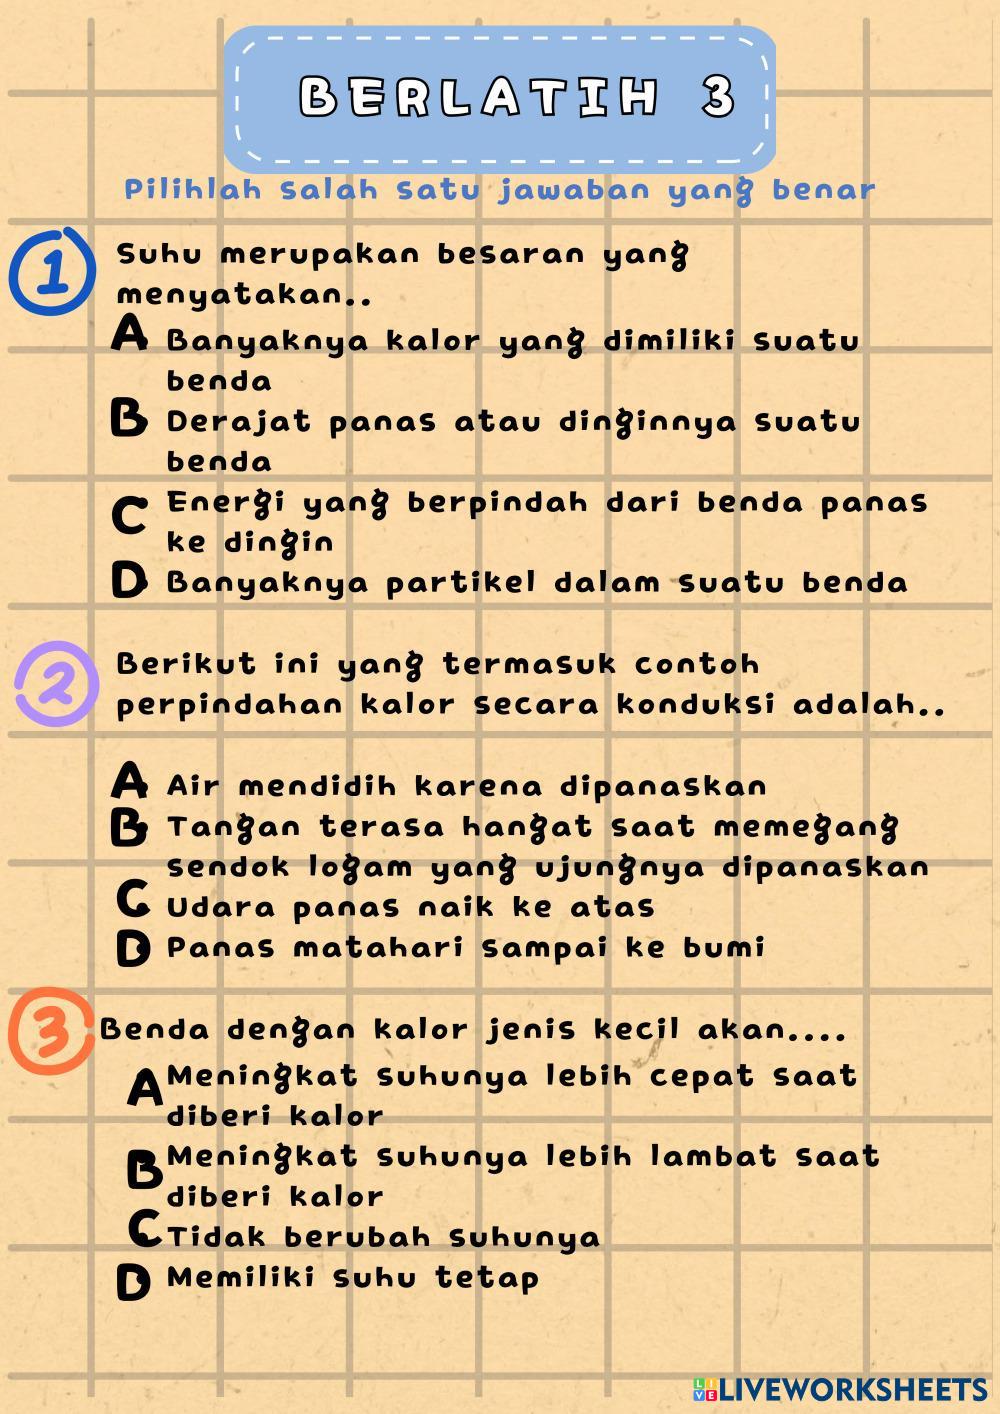 BERLATIH 3
Pilihlah salah satu jawaban yang benar
1
Suhu merupakan besaran yang
menyatakan..
A Banyaknya kalor yang dimiliki suatu
benda
B Derajat panas atau dinginnya suatu
benda
C Energi yang berpindah dari benda panas
ke dingin
D Banyaknya partikel dalam suatu benda
2
Berikut ini yang termasuk contoh
perpindahan kalor secara konduksi adalah..
A Air mendidih karena dipanaskan
B Tangan terasa hangat saat memegang
sendok logam yang ujungnya dipanaskan
C Udara panas naik ke atas
D Panas matahari sampai ke bumi
3 Benda dengan kalor jenis kecil akan....
A Meningkat suhunya lebih cepat saat
diberi kalor
B Meningkat suhunya lebih lambat saat
diberi kalor
C Tidak berubah suhunya
D Memiliki suhu tetap
LIVE LIVEWORKSHEETS